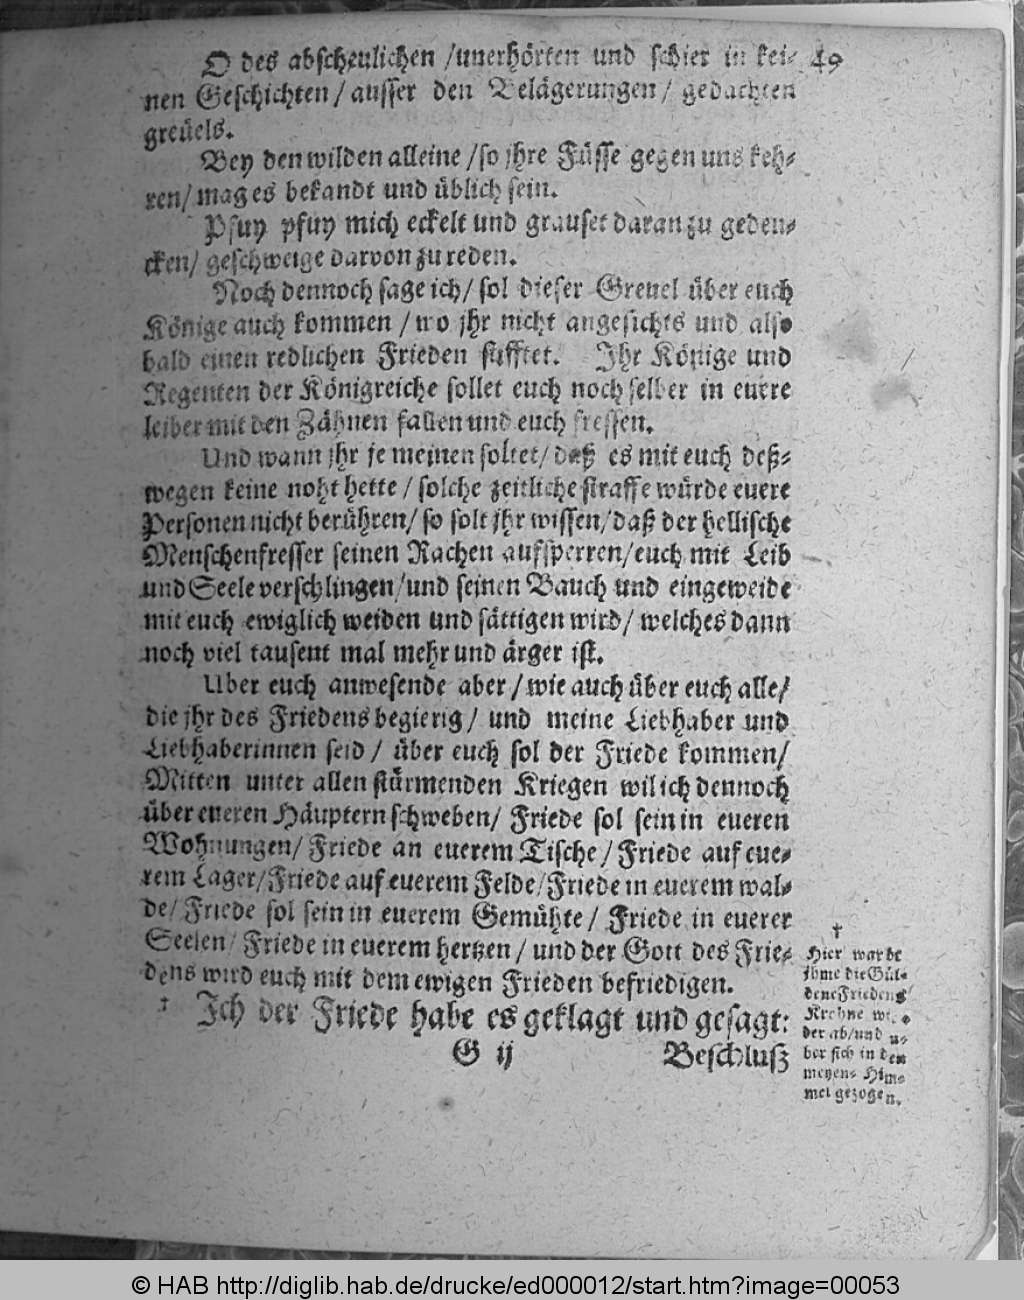 49
O des abscheulichen / unerhörten und schier in kei-
nen Geschichten / ausser den Belägerungen / gedachten
greüels.
Bey den wilden alleine / so jhre Füsse gegen uns keh-
ren / mag es bekandt und üblich sein.
Pfuy pfuy mich eckelt und grauset daran zu geden-
cken / geschweige darvon zu reden.
Noch dennoch sage ich / sol dieser Greuel über euch
Könige auch kommen / wo jhr nicht angesichts und also
bald einen redlichen Frieden stifftet. Jhr Könige und
Regenten der Königreiche sollet euch noch selber in euere
leiber mit den Zähnen fallen und euch fressen.
Und wann jhr je meinen soltet / daß es mit euch deß-
wegen keine noht hette / solche zeitliche straffe würde euere
Personen nicht berühren / so solt jhr wissen / daß der hellische
Menschenfresser seinen Rachen aufsperren / euch mit Leib
und Seele verschlingen / und seinen Bauch und eingeweide
mit euch ewiglich weiden und sättigen wird / welches dann
noch viel tausent mal mehr und ärger ist.
Uber euch anwesende aber / wie auch über euch alle /
die jhr des Friedens begierig / und meine Liebhaber und
Liebhaberinnen seid / über euch sol der Friede kommen /
Mitten unter allen stürmenden Kriegen wil ich dennoch
über eueren Häuptern schweben / Friede sol sein in eueren
Wohnungen / Friede an euerem Tische / Friede auf eue-
rem Lager / Friede auf euerem Felde / Friede in euerem wal-
de / Friede sol sein in euerem Gemühte / Friede in euerer
Seelen / Friede in euerem hertzen / und der Gott des Frie-
dens wird euch mit dem ewigen Frieden befriedigen.
† Ich der Friede habe es geklagt und gesagt:
G ij Beschluß
†
Hier warde
ihme die Gül-
dene Friedens
Krohne wi-
der ab / und ü-
ber sich in den
meyen- Him-
mel gezogen.
© HAB http://diglib.hab.de/drucke/ed000012/start.htm?image=00053